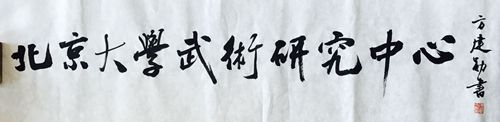 北京大學武術研究中心
方建勋書